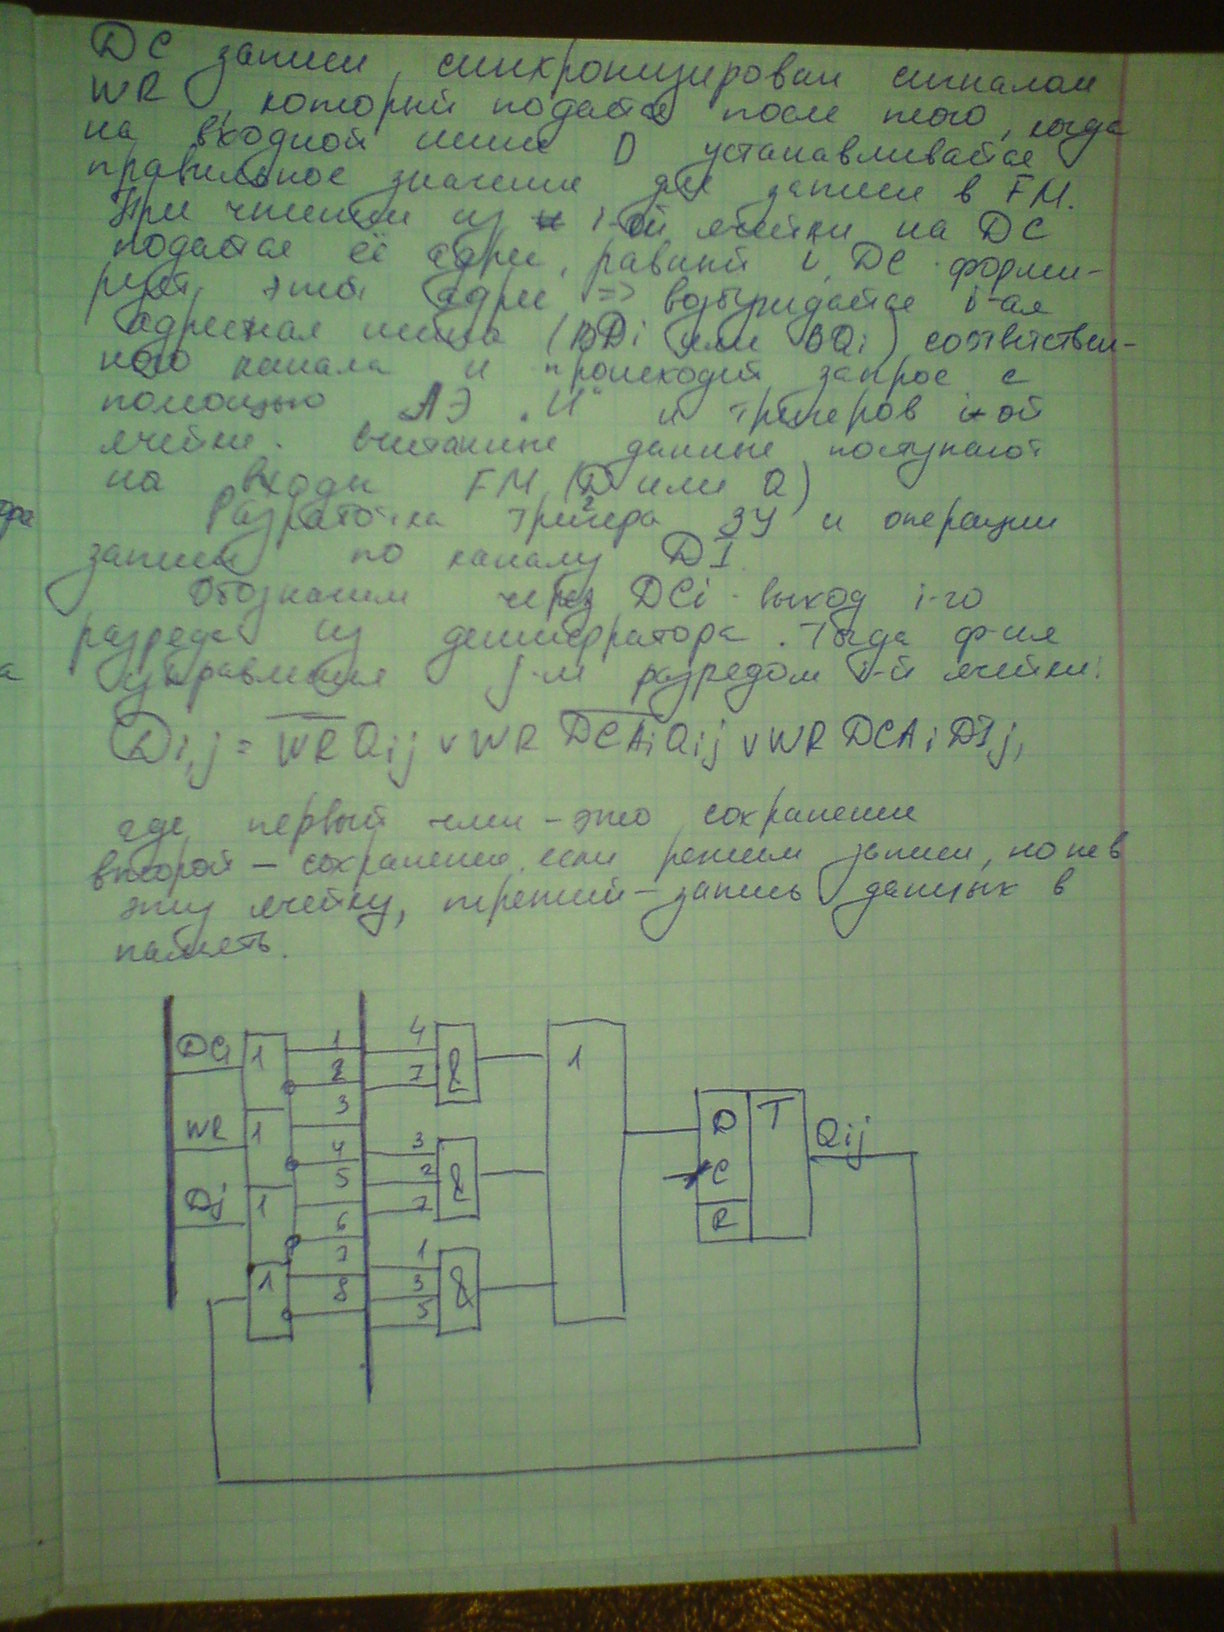 DC записи, синхронизирован сигналом
WR, который подается после того, когда
на входной шине D устанавливается
правильное значение для записи в FM.
При чтении из i-ой ячейки на DC
подается её адрес, равный i, DC форми-
рует этот адрес => возбуждается i-ая
адресная шина (BDi или BQi) соответствен-
ного канала и происходит запрос с
помощью ЛЭ "И" и триггеров i-ой
ячейки. Считанные данные поступают
на входы FM (D или Q)
Разработка триггера ЗУ и операции
записи по каналу DI.
Обозначим через DCi выход i-го
разряда из дешифратора. Тогда ф-ия
управления j-м разрядом i-й ячейки:
Di,j = \overline{WR} Qij v WR \overline{DCAi} Qij v WR DCAi DIj,
где первый член – это сохранение
второй – сохранение, если режим записи, но не в
эту ячейку, третий – запись данных в
память.
DCi 1 1 2 4 7 & 1
WR 1 3 4 3 2 7 &
Dj 1 5 6 1 3 5 &
1 7 8
D T Qij
C
R